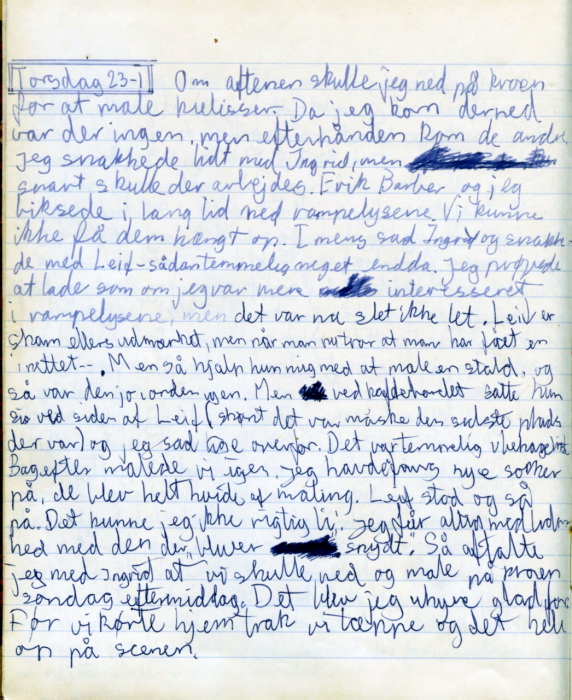 Torsdag 23-1 Om aftenen skulle jeg ned på kroen
for at male kulisser. Da jeg kom derned
var der ingen, men efterhånden kom de andre
jeg snakkede lidt med Ingrid, men
snart skulle der arbejdes. Erik Barber og jeg
biksede i lang tid med rampelysene. Vi kunne
ikke få dem hængt op. Imens sad Ingrid og snakk-
de med Leif - sådan temmelig meget endda. Jeg prøvede
at lade som om jeg var mere interesseret
i rampelysene, men det var nu slet ikke let. Leif er
sham ellers udmærket, men når man nu tror at man har fået en
i nettet--. Men så hjalp hun mig med at male en stald, og
så var den jo i orden igen. Men ved kaffebordet satte hun
sig ved siden af Leif (skønt det var måske den sidste plads
der var) og jeg sad lige overfor. Det var temmelig ubehageligt.
Bagefter malede vi igen. Jeg havde fars nye sokker
på, de blev helt hvide af maling. Leif stod og så
på. Det kunne jeg ikke rigtig li'. Jeg får altid medliden-
hed med den der bliver snydt". Så aftalte
jeg med Ingrid at vi skulle ned og male på kroen
søndag eftermiddag. Det blev jeg uhyre glad for.
Før vi kørte hjem trak vi tæppe og det hele
op på scenen.